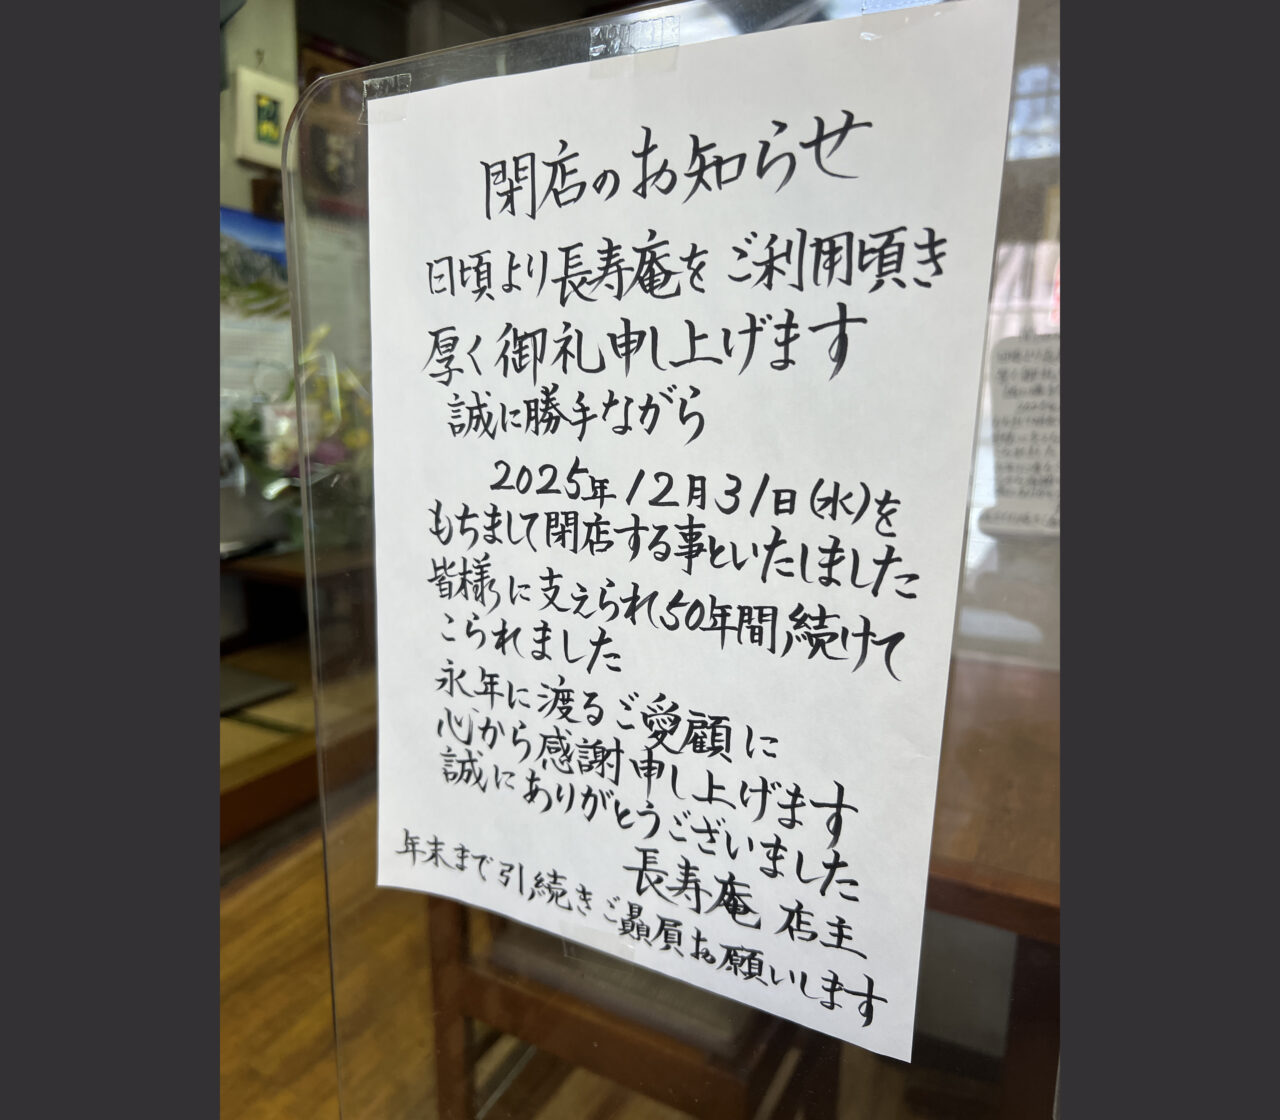 閉店のお知らせ
日頃より長寿庵をご利用頃き
厚く御礼申し上げます
誠に勝手ながら
2025年12月31日(水)を
もちまして閉店する事といたしました
皆様に支えられ50年間続けて
こられました
永年に渡るご愛顧に
心から感謝申し上げます
誠にありがとうございました
長寿庵 店主
年末まで引続きご贔屓お願いします